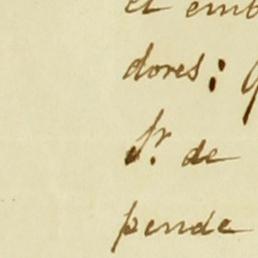 et emb
dores: q
Sr. de
pende